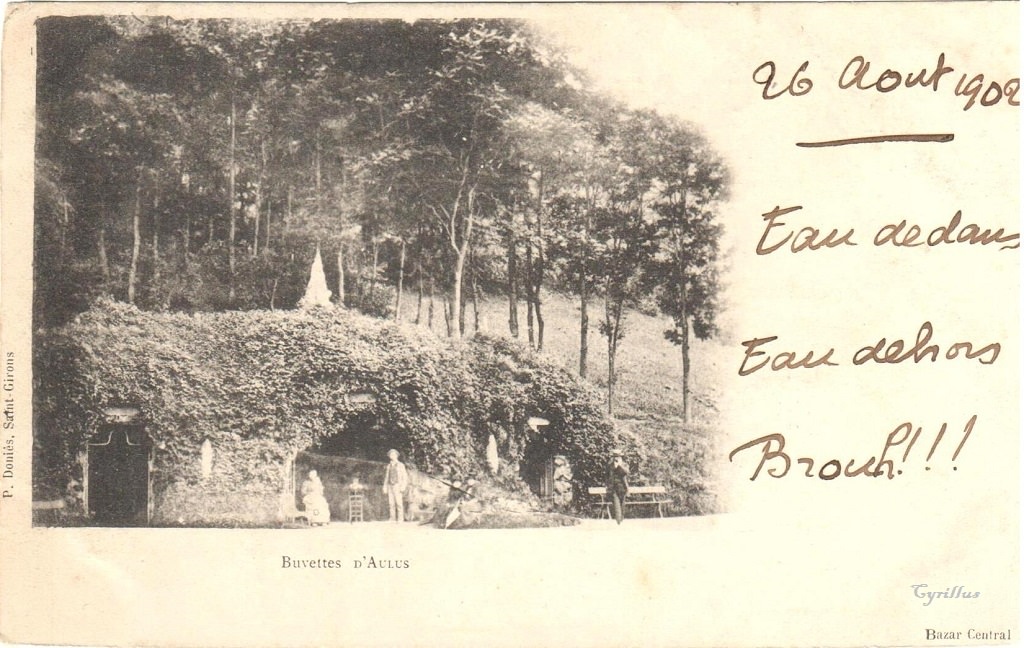 26 Aout 1902
Eau dedans
Eau dehors
Brouh!!!
P. Doniès, Saint-Girons
Buvettes d'Aulus
Cyrillus
Bazar Central